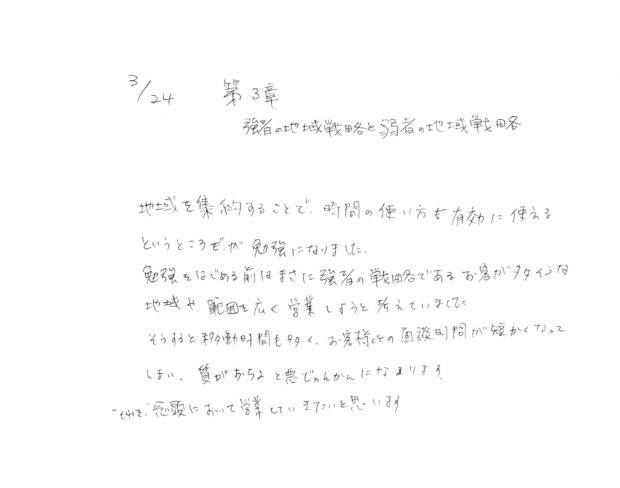 3/24 第3章
強者の地域戦略と弱者の地域戦略
地域を集約することで、時間の使い方も有効に使える
というところが勉強になりました。
勉強をはじめる前はまさに強者の戦略であるお客が多そうな
地域や、範囲を広く営業しようと考えていました
そうすると移動時間も多く、お客様との面談時間が短かくなって
しまい、質がおちると悪じゅんかんになります
それを念頭において営業していきたいと思います